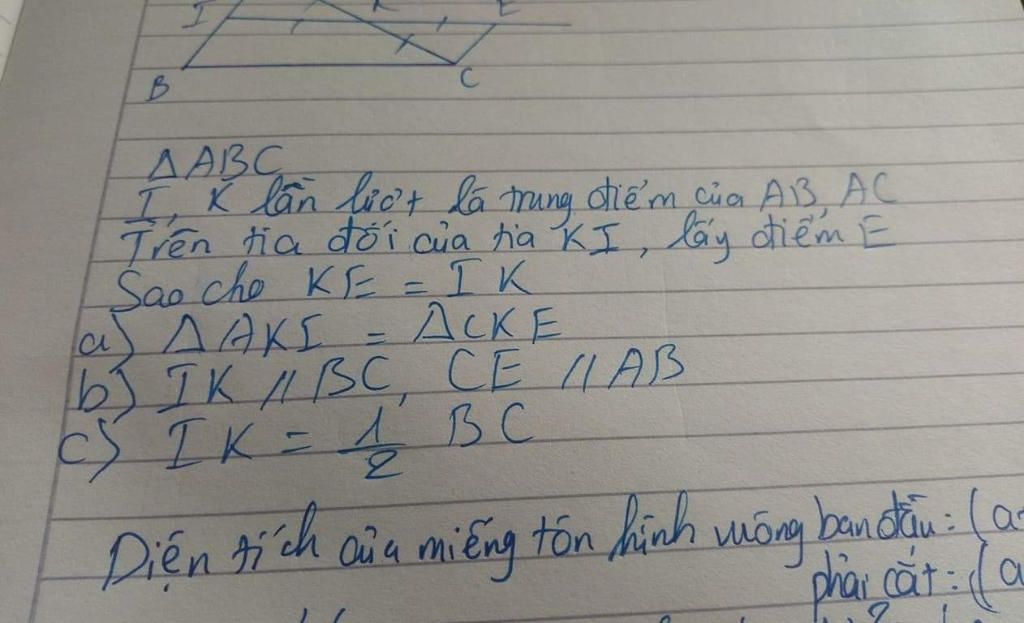 I K E
B C
ΔABC
I, K lần lượt là trung điểm của AB, AC
Trên tia đối của tia KI, lấy điểm E
Sao cho KE = IK
a) ΔAKI = ΔCKE
b) IK // BC, CE // AB
c) IK = 1/2 BC
Diện tích của miếng tôn hình vuông ban đầu: (a
phải cắt: (a